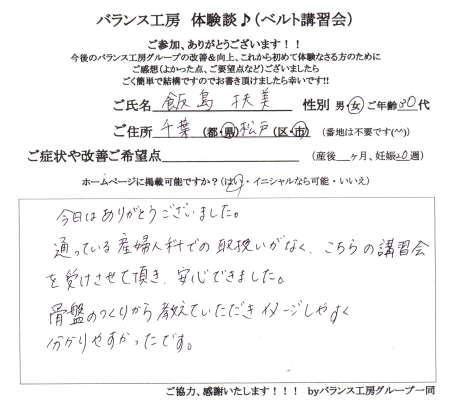 バランス工房　体験談♪（ベルト講習会）
ご参加、ありがとうございます！！
今後のバランス工房グループの改善＆向上、これから初めて体験なさる方のために
ご感想（よかった点、ご要望点など）ございましたら
ごく簡単で結構ですのでお書き頂けましたら幸いです!!
ご氏名 飯島 扶美 性別 男・女 ご年齢30代
ご住所 千葉（都・県）松戸（区・市）（番地は不要です(^^)）
ご症状や改善ご希望点（産後　ヶ月、妊娠20週）
ホームページに掲載可能ですか？（はい・イニシャルなら可能・いいえ）
今日はありがとうございました。
通っている産婦人科での取扱いがなく、こちらの講習会
を受けさせて頂き、安心できました。
骨盤のつくりから教えていただきイメージしやすく
分かりやすかったです。
ご協力、感謝いたします！！！ byバランス工房グループ一同